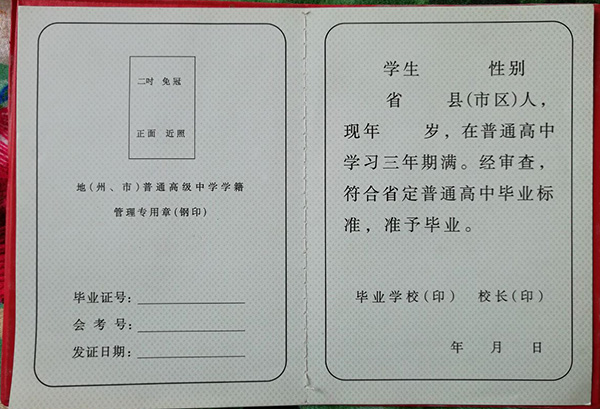 二吋 免冠
正面 近照
地(州、市)普通高级中学学籍
管理专用章(钢印)
毕业证号:
会考号:
发证日期:
学生 性别
省 县(市区)人,
现年 岁,在普通高中
学习三年期满。经审查,
符合省定普通高中毕业标
准,准予毕业。
毕业学校(印) 校长(印)
年 月 日